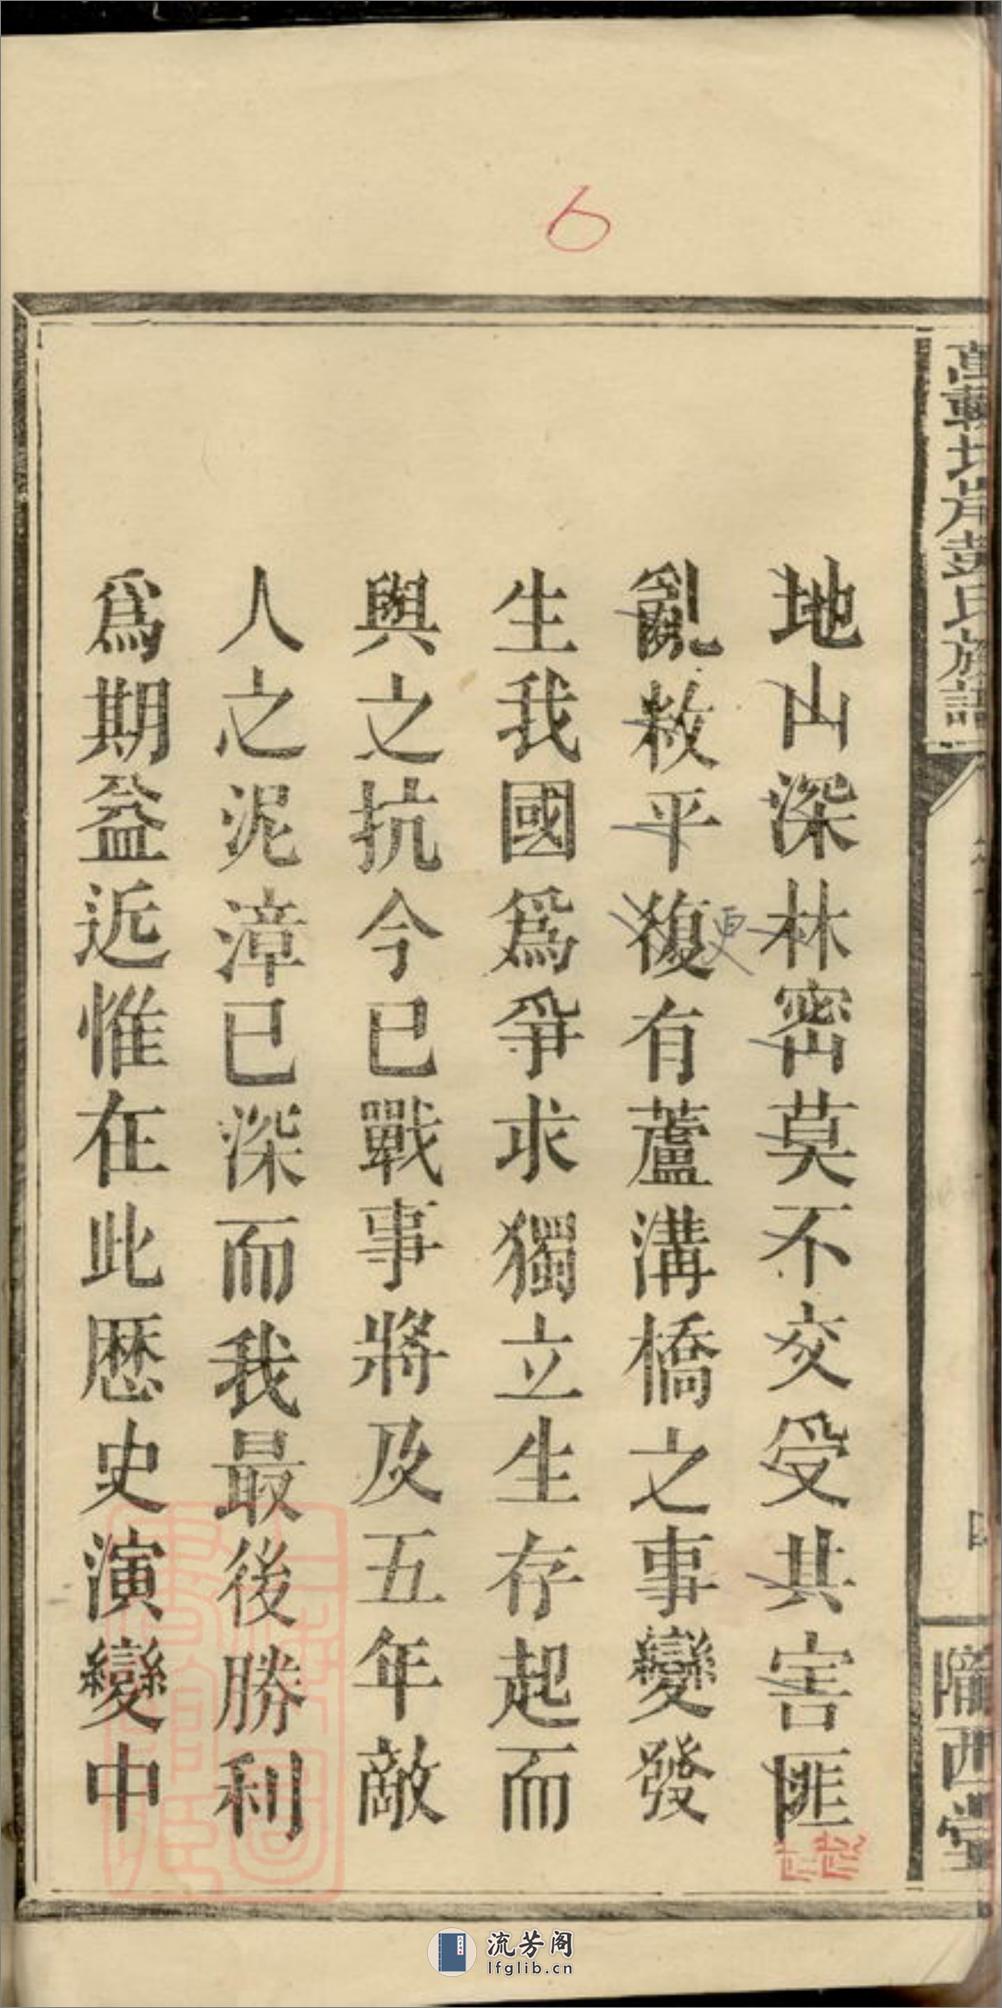 6
地山深林密莫不交受其害匪
亂敉平複有蘆溝橋之事變發
更
生我國爲爭求獨立生存起而
與之抗今已戰事將及五年敵
人之泥漳已深而我最後勝利
爲期益近惟在此歷史演變中
氏族譜
隴西堂
流芳阁
lfglib.cn